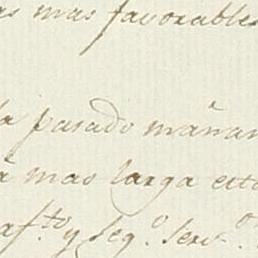 as mas favorables
pasado mañan
à mas larga esta
af.to y seg.o serv.or